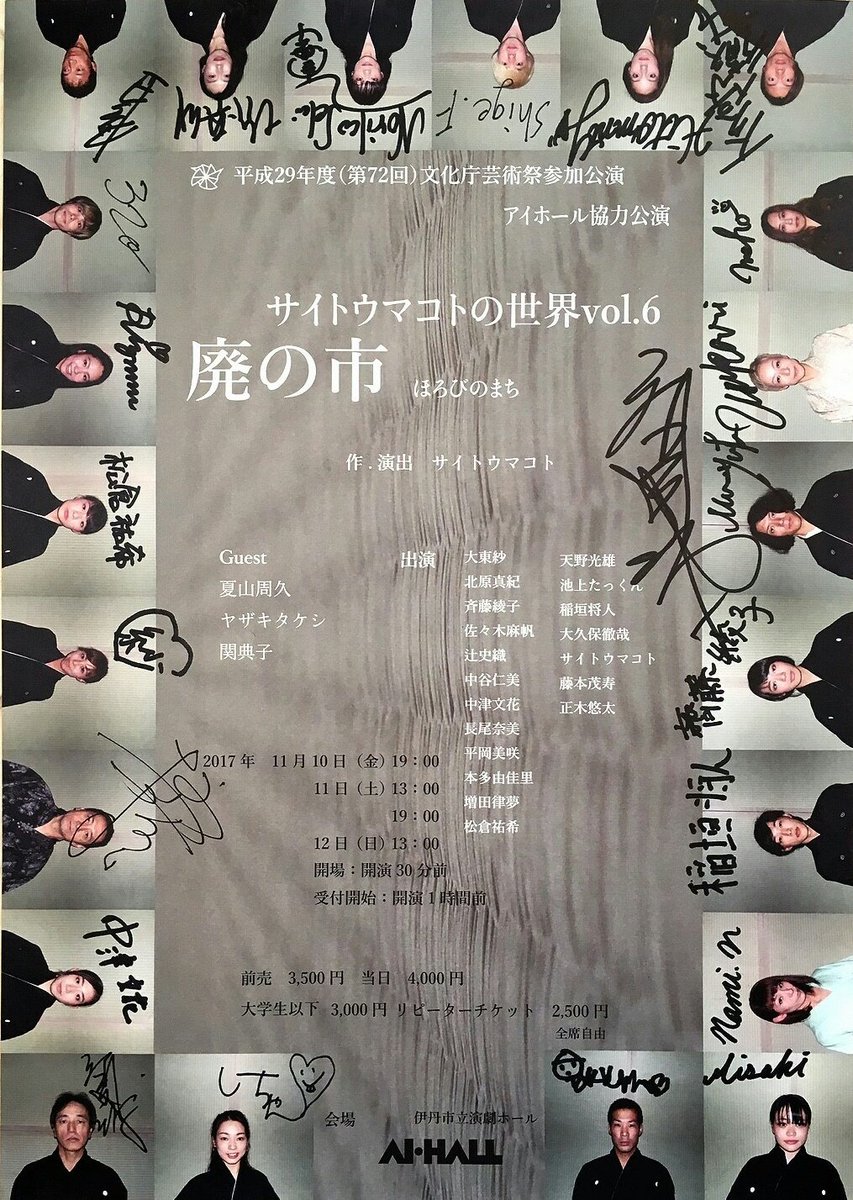 平成29年度(第72回)文化庁芸術祭参加公演
アイホール協力公演
サイトウマコトの世界vol.6
廃の市 ほろびのまち
作.演出 サイトウマコト
Guest
夏山周久
ヤザキタケシ
関典子
出演
大東紗
北原真紀
斉藤綾子
佐々木麻帆
辻史織
中谷仁美
中津文花
長尾奈美
平岡美咲
本多由佳里
増田律夢
松倉祐希
天野光雄
池上たっくん
稲垣将人
大久保徹哉
サイトウマコト
藤本茂寿
正木悠太
2017年 11月10日(金)19:00
11日(土)13:00
19:00
12日(日)13:00
開場:開演30分前
受付開始:開演1時間前
前売 3,500円 当日 4,000円
大学生以下 3,000円 リピーターチケット 2,500円
全席自由
会場 伊丹市立演劇ホール
AI・HALL
Shige.F
naho
松倉祐希
齋藤綾子
稲垣将人
Nami.n
Misaki